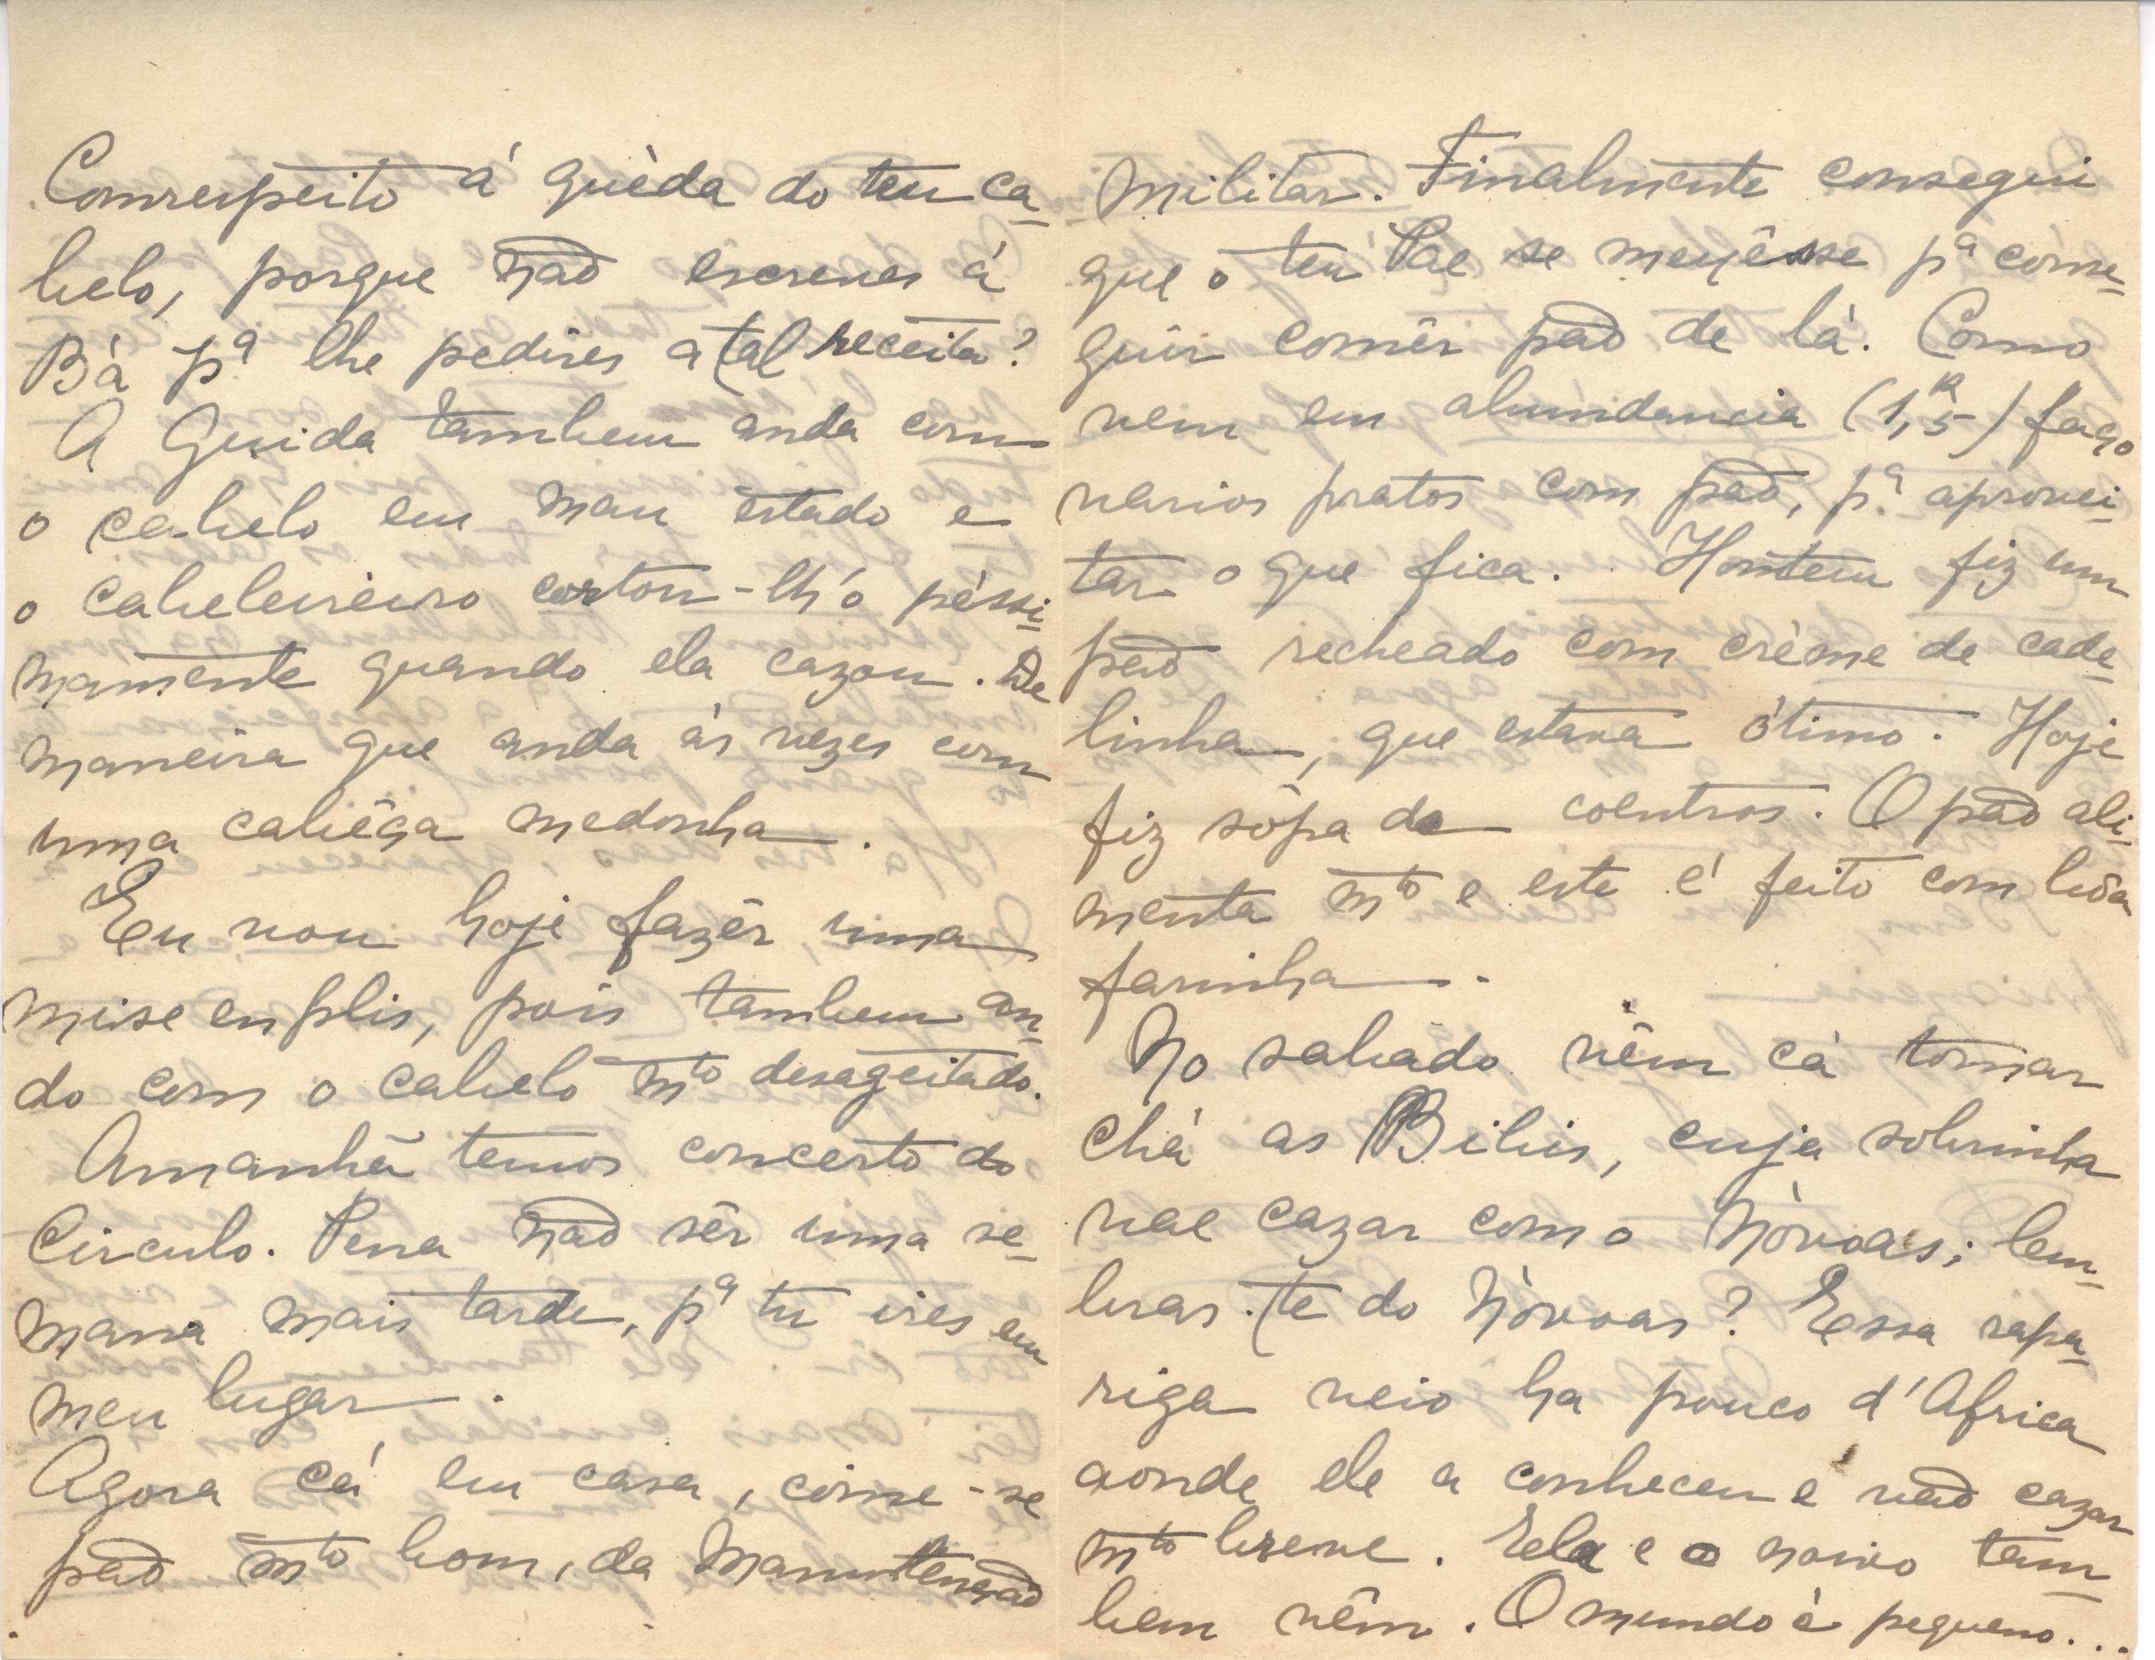 Comrespeito á quèda do teu ca-
belo, porque não escreves á
Bá pª lhe pedires a tal receita?
A Guida tambem anda com
o cabelo em mau estado e
o cabeleireiro cortou-lh'o péssi-
mamente quando ela cazou. De
maneira que anda ás vezes com
uma cabêça medonha.
Eu vou hoje fazêr uma
mise en plis, pois tambem an-
do com o cabelo mto desageitado.
Amanhã temos concerto do
Circulo. Pena não sêr uma se-
mana mais tarde, pª tu ires em
meu lugar.
Agora cá em casa, cóme-se
pão mto bom, da Manutenção
Militar. Finalmente consegui
que o teu Pae se mexêsse pª conse-
guir comêr pão de lá. Como
vem em abundancia (1,5k) faço
varios pratos com pão, pª aprovei-
tar o que fica. Hontem fiz um
pão recheado com crème de cade-
linha, que estava ótimo. Hoje
fiz sôpa de coentros. O pão ali-
menta mto e este é feito com bôa
farinha.
No sabado vêm cá tomar
chá as Bibis, cuja sobrinha
vae cazar com o Nòvoas; lem-
bras-te do Nòvoas? Essa rapa-
riga veio ha pouco d'Africa
aonde ele a conheceu e vão cazar
mto breve. Ela e o noivo tam-
bem vêm. O mundo è pequeno...